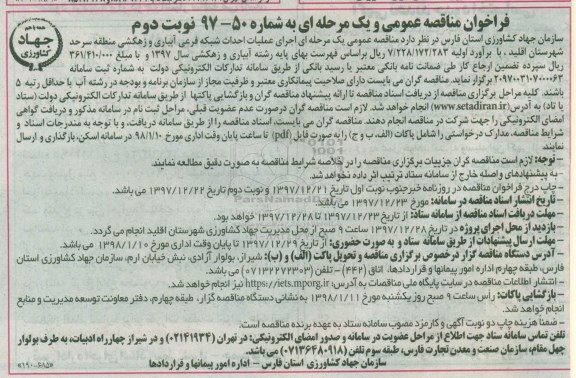 فراخوان مناقصه عمومی و یک مرحله ای به شماره ۵۰-۹۷ نوبت دوم
جهاد کشاورزی
سازمان جهاد کشاورزی استان فارس در نظر دارد مناقصه عمومی یک مرحله ای اجرای عملیات احداث شبکه فرعی آبیاری و زهکشی منطقه سرحد
شهرستان اقلید ، با برآورد اولیه ۷/۲۲۸/۱۷۲/۲۸۳ ریال براساس فهرست بهای پایه رشته آبیاری و زهکشی سال ۱۳۹۷ و با مبلغ ۳۶۱/۴۱۰/۰۰۰
ریال سپرده تضمین ارجاع کار طی ضمانت نامه بانکی معتبر یا رسید بانکی از طریق سامانه تدارکات الکترونیکی دولت به شماره ثبت سامانه
۲۰۹۷۰۰۳۱۰۷۰۰۰۰۶۳ برگزار نماید. مناقصه گران می بایست دارای صلاحیت پیمانکاری معتبر و ظرفیت مجاز از سازمان برنامه و بودجه در رشته آب با حداقل رتبه: ۵
باشند. کلیه مراحل برگزاری مناقصه از دریافت اسناد مناقصه تا ارائه پیشنهاد مناقصه گران و بازگشایی پاکتها از طریق سامانه تدارکات الکترونیکی دولت (ستاد
یا تاد) به آدرس (www.setadiran.ir) انجام خواهد شد. لازم است مناقصه گران درصورت عدم عضویت قبلی، مراحل ثبت نام در سامانه مذکور و دریافت گواهی
امضای الکترونیکی را جهت شرکت در مناقصه انجام دهند. مناقصه گران می بایست، اسناد مناقصه را از طریق سامانه دریافت، و با توجه به مندرجات اسناد و
شرایط مناقصه، مدارک درخواستی را شامل پاکات (الف، ب و ج) را به صورت فایل (pdf) تا ساعت پایان وقت اداری مورخ ۹۸/۱/۱۰ در سامانه اسکن، بارگذاری و ارسال
نمایند.
- توجه: لازم است مناقصه گران جزییات برگزاری مناقصه را در خلاصه شرایط مناقصه به صورت دقیق مطالعه نمایند.
- به پیشنهادهای واصله خارج از سامانه ستاد ترتیب اثر داده نخواهد شد.
- چاپ درج فراخوان مناقصه در روزنامه خبرجنوب نوبت اول تاریخ ۱۳۹۷/۱۲/۲۱ و نوبت دوم تاریخ ۱۳۹۷/۱۲/۲۲ می باشد.
- تاریخ انتشار اسناد مناقصه در سامانه: مورخ ۱۳۹۷/۱۲/۲۳ می باشد.
- مهلت دریافت اسناد مناقصه از سامانه ستاد: از تاریخ ۱۳۹۷/۱۲/۲۳ تا ۱۳۹۷/۱۲/۲۸ خواهد بود.
- بازدید از محل اجرای پروژه در تاریخ ۱۳۹۷/۱۲/۲۸ ساعت ۹ صبح از محل مدیریت جهاد کشاورزی شهرستان اقلید انجام می گردد.
- مهلت ارسال پیشنهادات از طریق سامانه ستاد و به صورت حضوری: از تاریخ ۱۳۹۷/۱۲/۲۹ تا پایان وقت اداری مورخ ۱۳۹۸/۱/۱۰ می باشد.
آدرس دستگاه مناقصه گزار درخصوص برگزاری مناقصه و تحویل پاکت (الف) و (ب): شیراز، بولوار آزادی، نبش خیابان ارم، سازمان جهاد کشاورزی استان
فارس، طبقه چهارم اداره امور پیمانها و قراردادها، اتاق (۴۴۲) - تلفن (۰۷۱۳۲۲۷۲۳۰۳) می باشد.
- انتشار اطلاعات مناقصه در سایت پایگاه ملی مناقصات به آدرس: https://iets.mporg.ir نیز انجام خواهد شد.
- بازگشایی پاکات: راس ساعت ۹ صبح روز یکشنبه مورخ ۱۳۹۸/۱/۱۱ به نشانی دستگاه مناقصه گزار، طبقه چهارم، دفتر معاونت توسعه مدیریت و منابع
انجام خواهد شد.
- ضمنا هزینه چاپ دو نوبت آگهی و کارمزد مصوب سامانه ستاد به عهده برنده مناقصه است.
تلفن تماس سامانه ستاد جهت اطلاع از مراحل عضویت در سامانه و صدور امضای الکترونیکی: در تهران (۰۲۱۴۱۹۳۴) و در شیراز چهارراه ادبیات، به طرف بولوار
چهل مقام، سازمان صنعت و معدن تجارت فارس، طبقه سوم تلفن (۰۷۱۳۶۴۸۰۹۱۸) می باشد.
سازمان جهاد کشاورزی استان فارس - اداره امور پیمانها و قراردادها